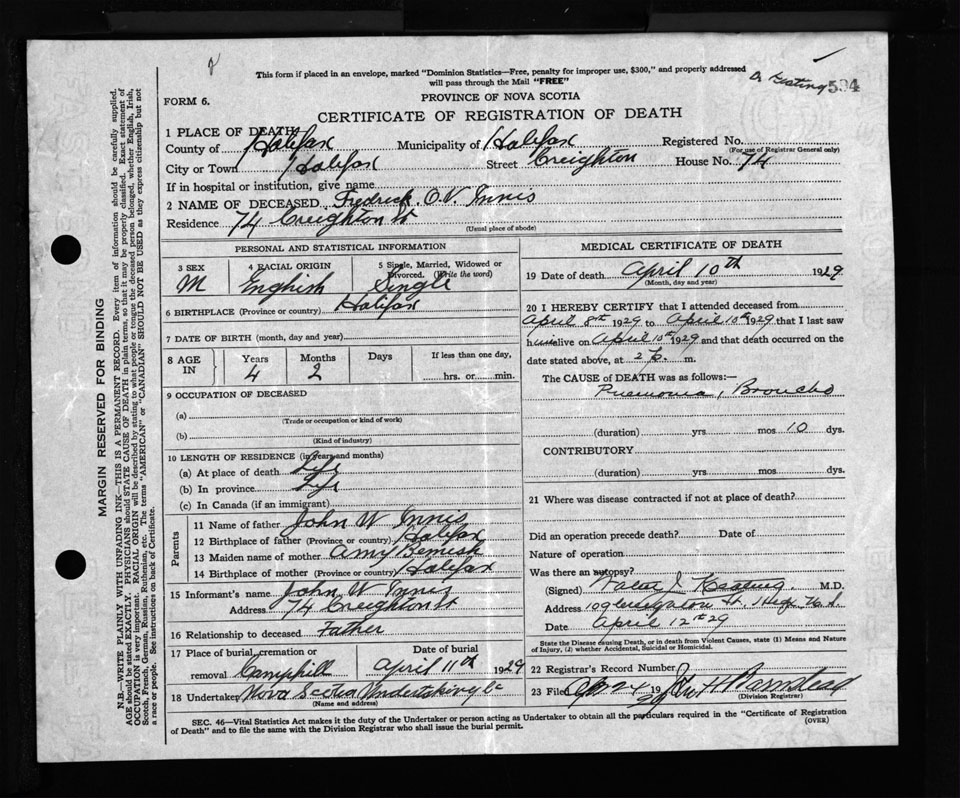 This form if placed in an envelope, marked "Dominion Statistics—Free, penalty for improper use, $300," and properly addressed
will pass through the Mail "FREE"
Dr Keating 594
PROVINCE OF NOVA SCOTIA
FORM 6.
CERTIFICATE OF REGISTRATION OF DEATH
1 PLACE OF DEATH
County of Halifax Municipality of Halifax Registered No.
(For use of Registrar General only)
City or Town Halifax Street Creighton House No. 74
If in hospital or institution, give name
2 NAME OF DECEASED Fredrick O.V. Innis
Residence 74 Creighton St
(Usual place of abode)
PERSONAL AND STATISTICAL INFORMATION
3 SEX 4 RACIAL ORIGIN 5 Single, Married, Widowed or
Divorced. (Write the word)
M English Single
6 BIRTHPLACE (Province or country) Halifax
7 DATE OF BIRTH (month, day and year)
8 AGE IN Years Months Days If less than one day,
4 2 hrs. or min.
9 OCCUPATION OF DECEASED
(a)
(Trade or occupation or kind of work)
(b)
(Kind of industry)
10 LENGTH OF RESIDENCE (in years and months)
(a) At place of death Life
(b) In province Life
(c) In Canada (if an immigrant)
Parents
11 Name of father John W Innis
12 Birthplace of father (Province or country) Halifax
13 Maiden name of mother Amy Bemish
14 Birthplace of mother (Province or country) Halifax
15 Informant's name John W Innis
Address 74 Creighton St
16 Relationship to deceased Father
17 Place of burial, cremation or removal Date of burial
Camphill April 11th 1929
18 Undertaker Nova Scotia Undertaking Co
(Name and address)
MEDICAL CERTIFICATE OF DEATH
19 Date of death April 10th 1929
(Month, day and year)
20 I HEREBY CERTIFY that I attended deceased from
April 8th 1929 to April 10th 1929 that I last saw
him alive on April 10th 1929 and that death occurred on the
date stated above, at 2 m.
The CAUSE of DEATH was as follows:—
Pneumonia, Broncho
(duration) yrs mos 10 dys.
CONTRIBUTORY
(duration) yrs. mos. dys.
21 Where was disease contracted if not at place of death?
Did an operation precede death? Date of
Nature of operation
Was there an autopsy?
(Signed) J Keating M.D.
Address 109 St. Hfx
Date April 12th 29
State the Disease causing Death, or in death from Violent Causes, state (1) Means and Nature
of Injury, (2) whether Accidental, Suicidal or Homicidal.
22 Registrar's Record Number
23 Filed Ap 24 1929 Barnstead
(Division Registrar)
SEC. 46—Vital Statistics Act makes it the duty of the Undertaker or person acting as Undertaker to obtain all the particulars required in the "Certificate of Registration
of Death" and to file the same with the Division Registrar who shall issue the burial permit.
(OVER)
MARGIN RESERVED FOR BINDING
N.B.—WRITE PLAINLY WITH UNFADING INK—THIS IS A PERMANENT RECORD. Every item of information should be carefully supplied.
AGE should be stated EXACTLY. PHYSICIANS should STATE CAUSE OF DEATH in plain terms, so that it may be properly classified. Exact statement of
OCCUPATION is very important. RACIAL ORIGIN will be described by stating to what people or tongue the deceased person belonged, whether English, Irish,
Scotch, French, German, Russian, Ruthenian, etc. The terms "AMERICAN" or "CANADIAN" SHOULD NOT BE USED as they express citizenship but not
a race or people. See instructions on back of Certificate.